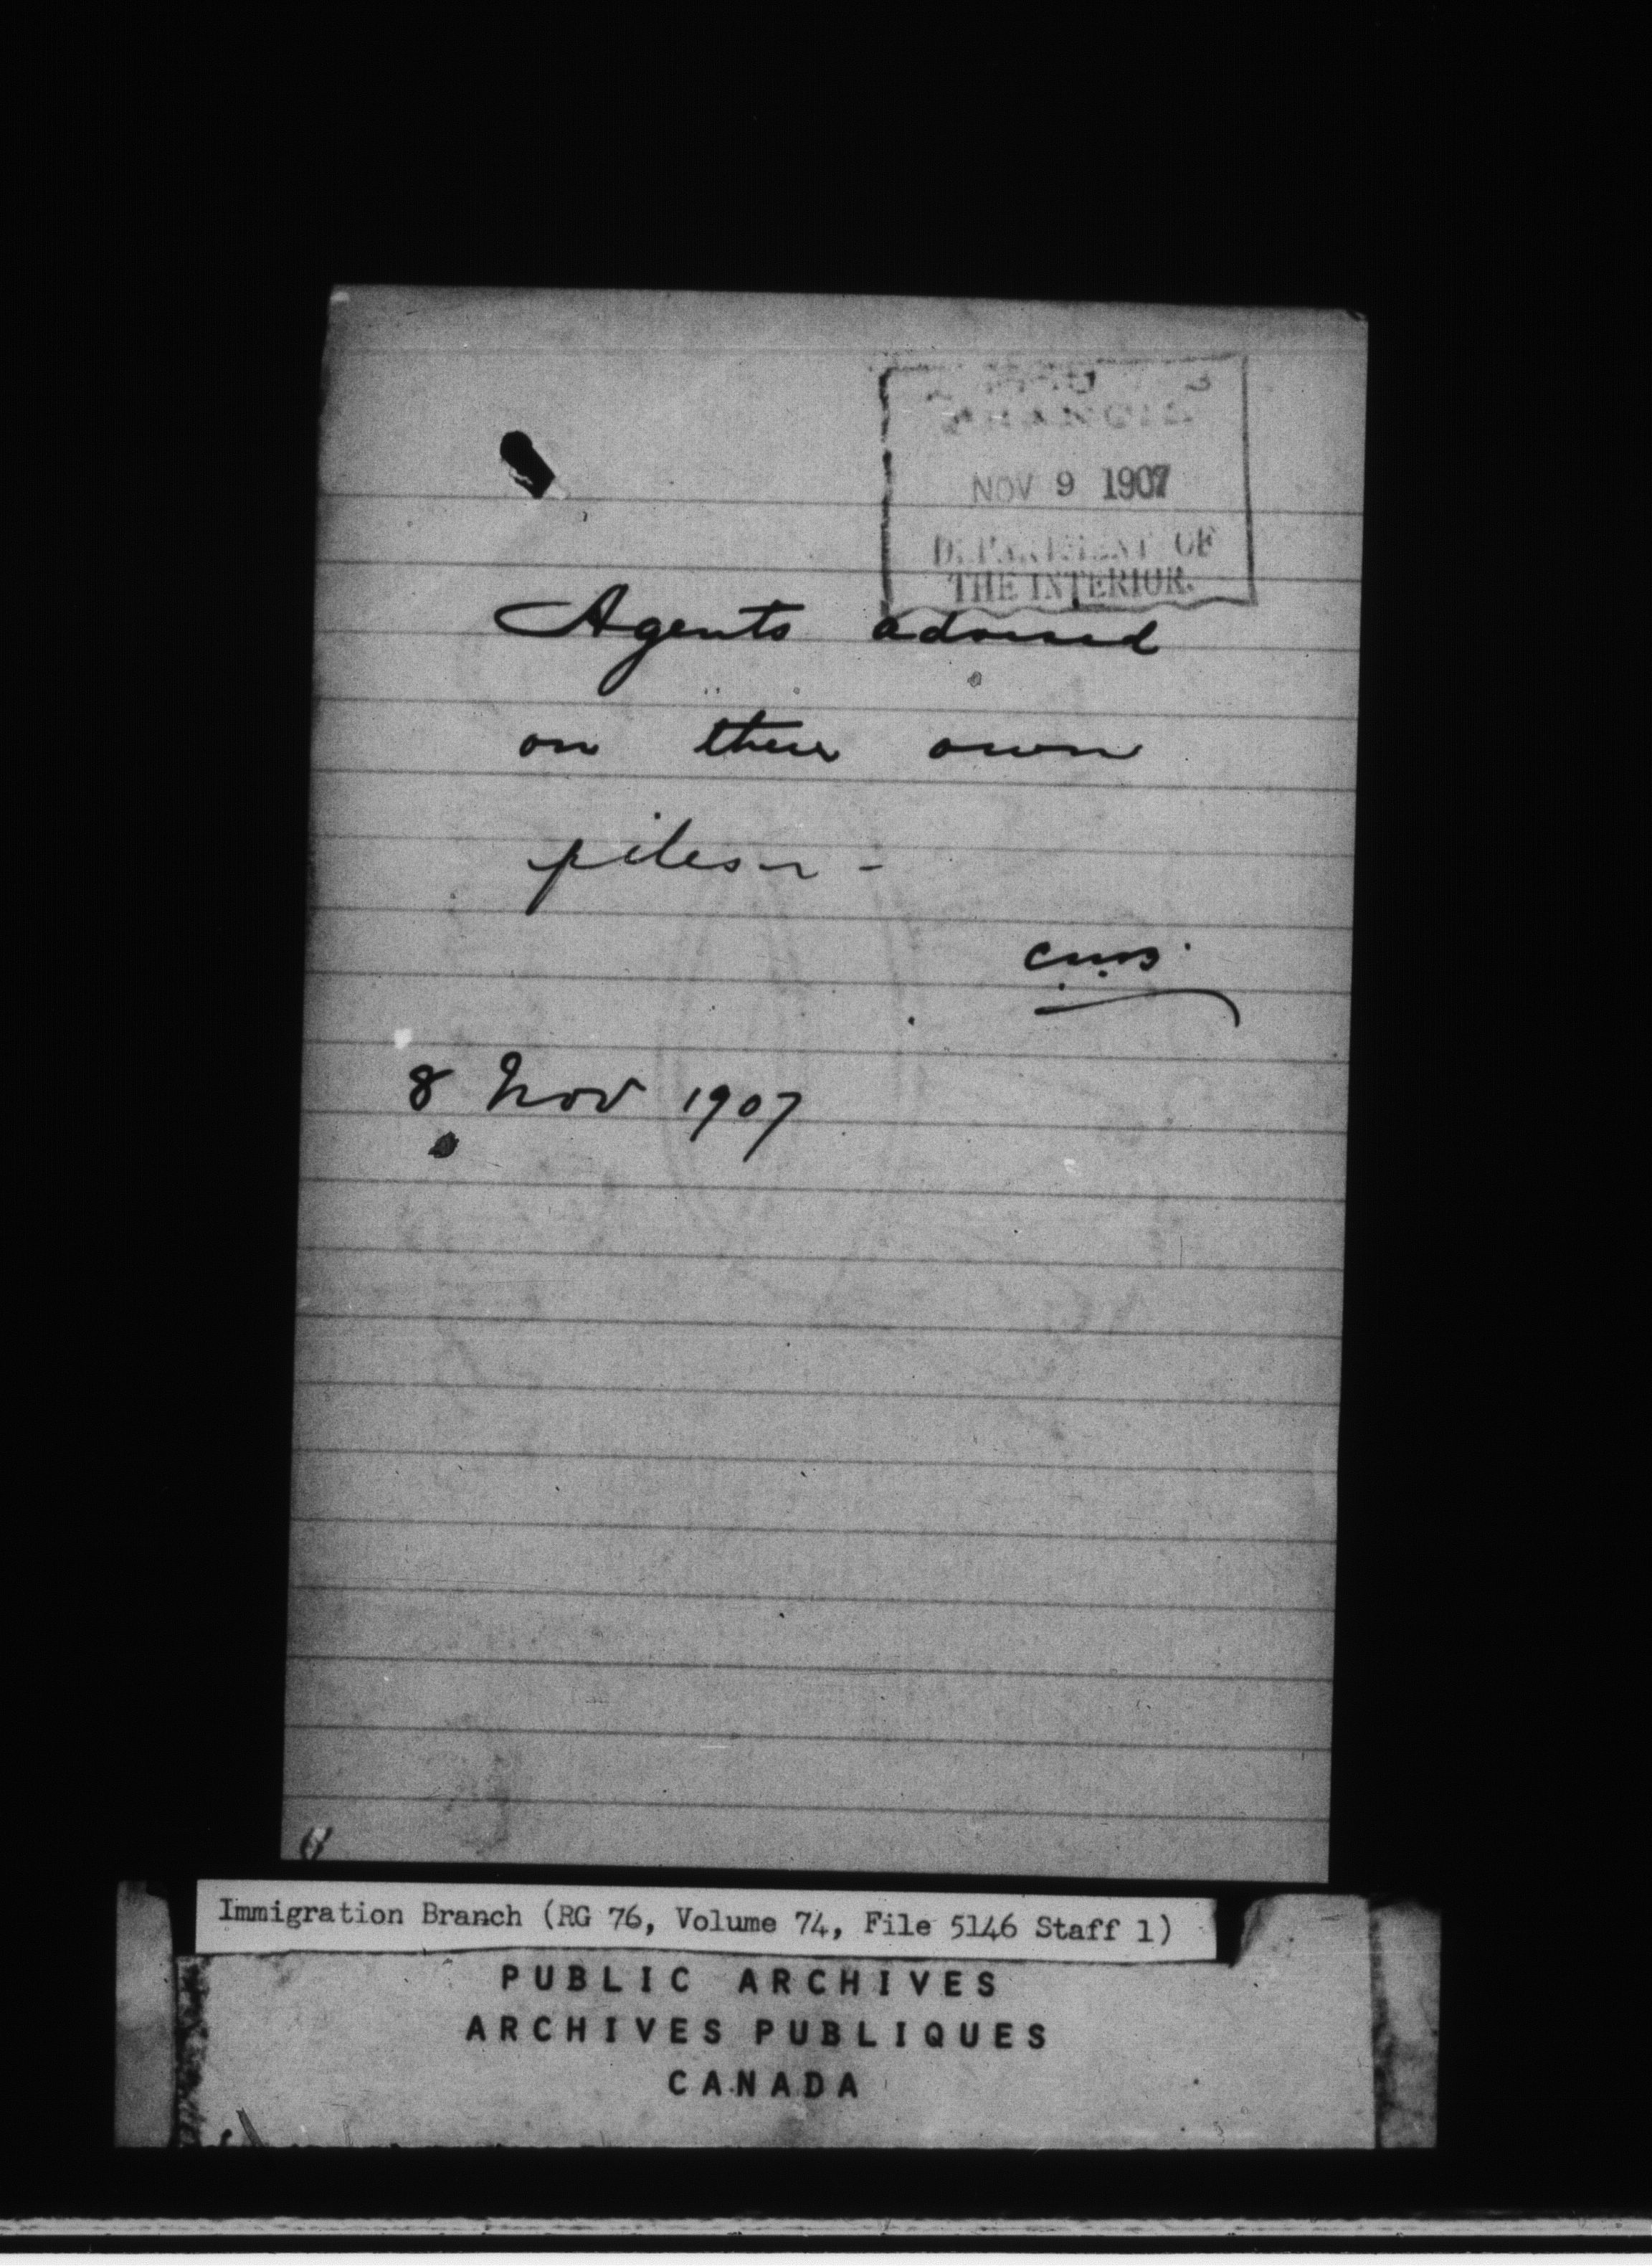 NOV 9 1907
DEPARTMENT OF
THE INTERIOR.
Agents advised
on their own
files -
8 Nov 1907
Immigration Branch (RG 76, Volume 74, File 5146 Staff 1)
PUBLIC ARCHIVES
ARCHIVES PUBLIQUES
CANADA